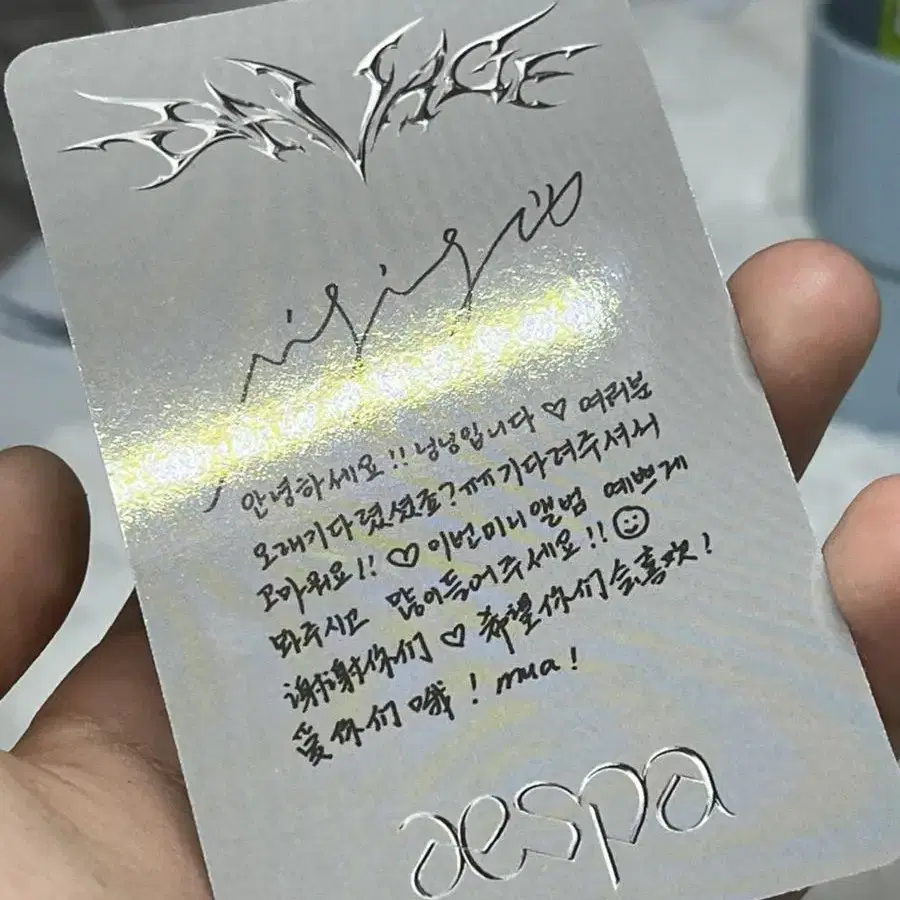 SAVAGE
안녕하세요!! 닝닝입니다 ♡ 여러분
오래기다렸셨죠? 기다려주셔서
고마워요!! ♡ 이번미니앨범 예쁘게
봐주시고 많이들어주세요!! ☺
谢谢你们 ♡ 希望你们会喜欢!
爱你们哦! mua!
aespa